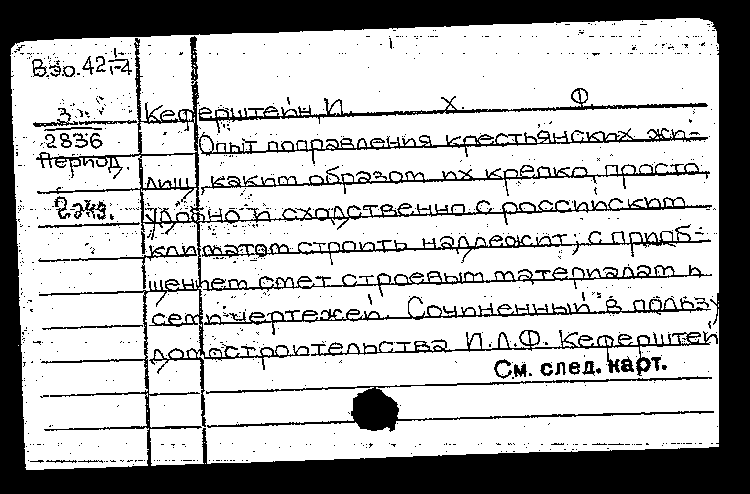 В.эо.42 1/1-4
Кеферштейн, И. Х. Ф.
2836
Опыт поправления крестьянских жи-
Период.
лищ, каким образом их крепко, просто,
2 экз.
удобно и сходственно с российским
климатом строить надлежит; с приоб-
щением смет строевым материалам и
семи чертежей. Сочиненный в пользу
домостроительства И.Л.Ф. Кеферштей
См. след. карт.